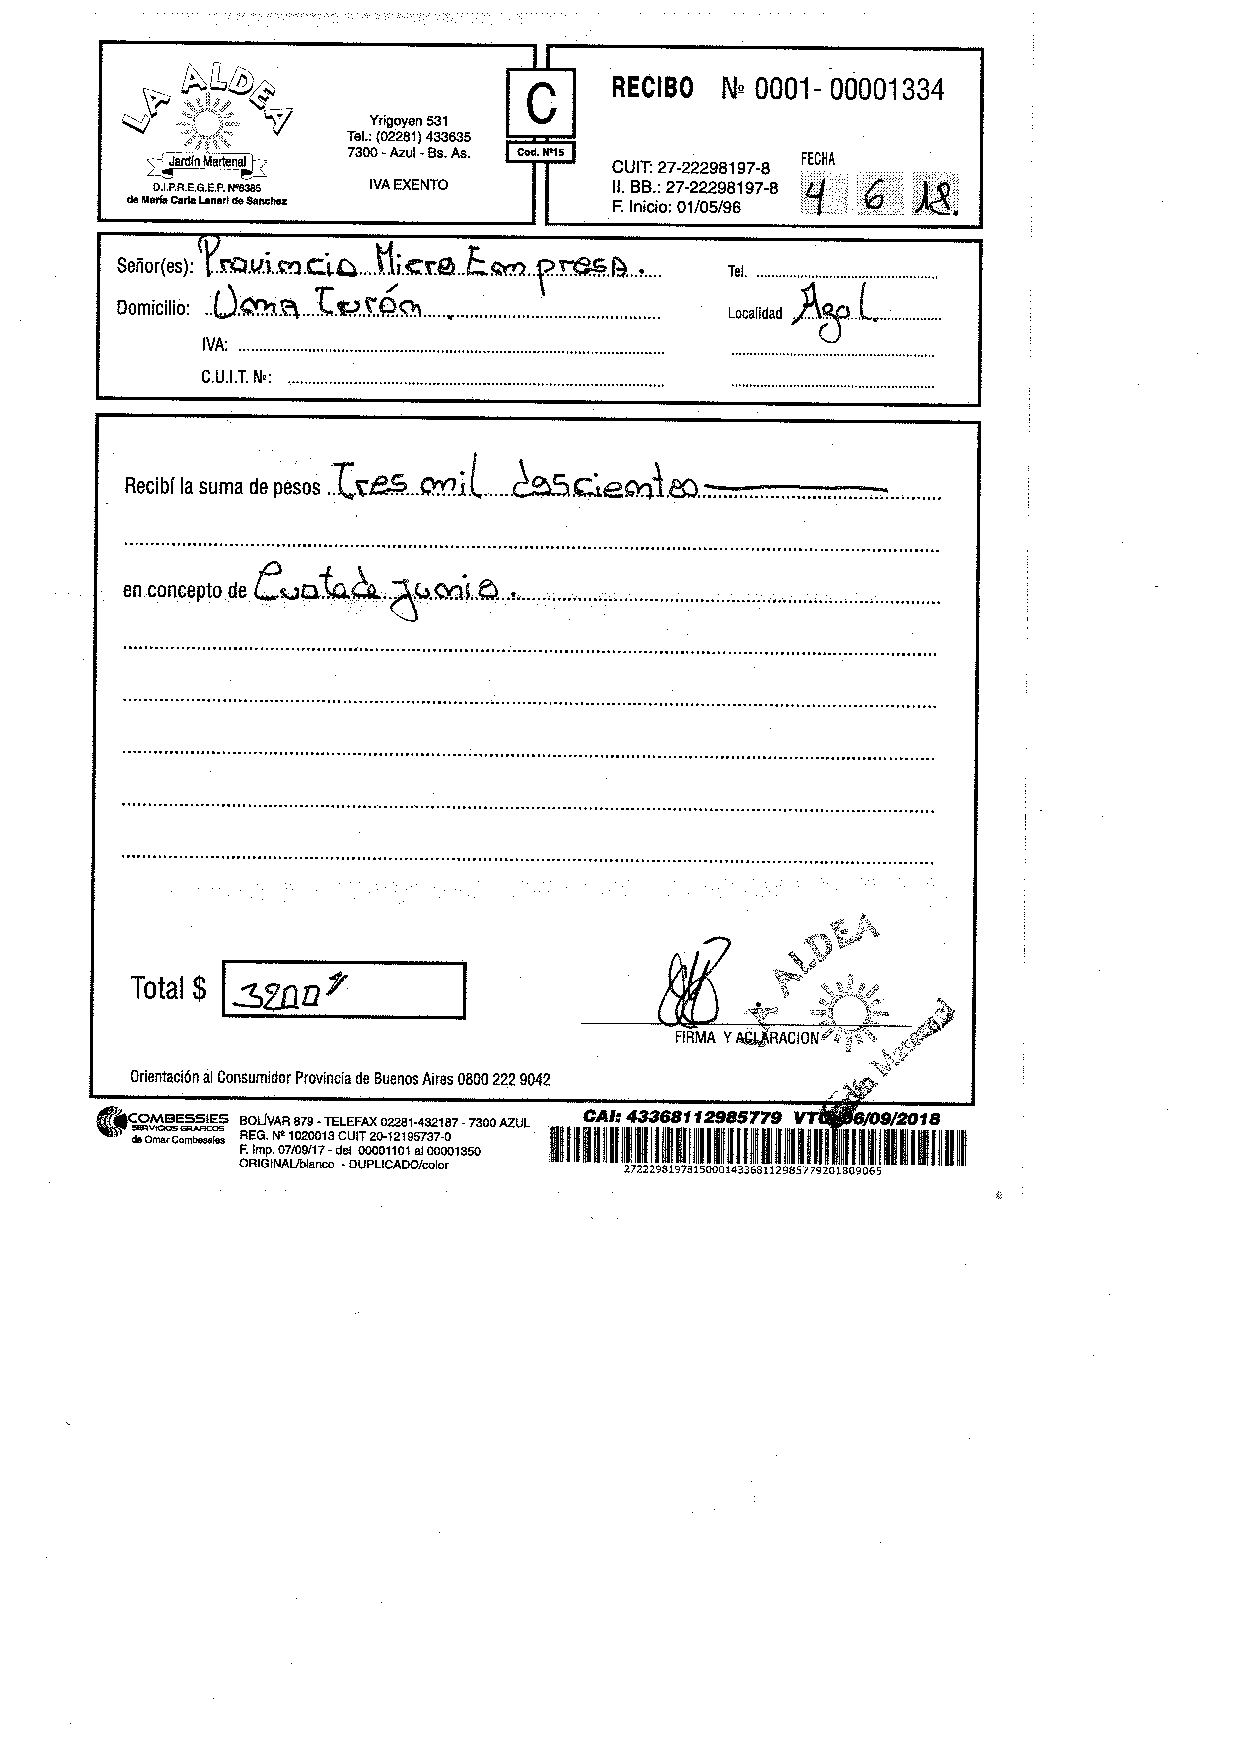 LA ALDEA
Jardín Marternal
D.I.P.R.E.G.E.P. Nº6385
de María Carla Lanari de Sanchez
Yrigoyen 531
Tel.: (02281) 433635
7300 - Azul - Bs. As.
IVA EXENTO
C
Cod. Nº15
RECIBO Nº 0001- 00001334
CUIT: 27-22298197-8
II. BB.: 27-22298197-8
F. Inicio: 01/05/96
FECHA
4 6 18.
Señor(es): Provincia Micro Empresa.
Tel.
Domicilio: Uma Turón
Localidad Azul
IVA:
C.U.I.T. Nº:
Recibí la suma de pesos Tres mil doscientos
en concepto de Cuota de junio.
Total $ 3200
FIRMA Y ACLARACION
LA ALDEA
Jardín Maternal
Orientación al Consumidor Provincia de Buenos Aires 0800 222 9042
COMBESSIES
SERVICIOS GRAFICOS
de Omar Combessies
BOLÍVAR 879 - TELEFAX 02281-432187 - 7300 AZUL
REG. Nº 1020013 CUIT 20-12195737-0
F. Imp. 07/09/17 - del 00001101 al 00001350
ORIGINAL/blanco - DUPLICADO/color
CAI: 43368112985779 VTO 06/09/2018
2722298197815000143368112985779201809065